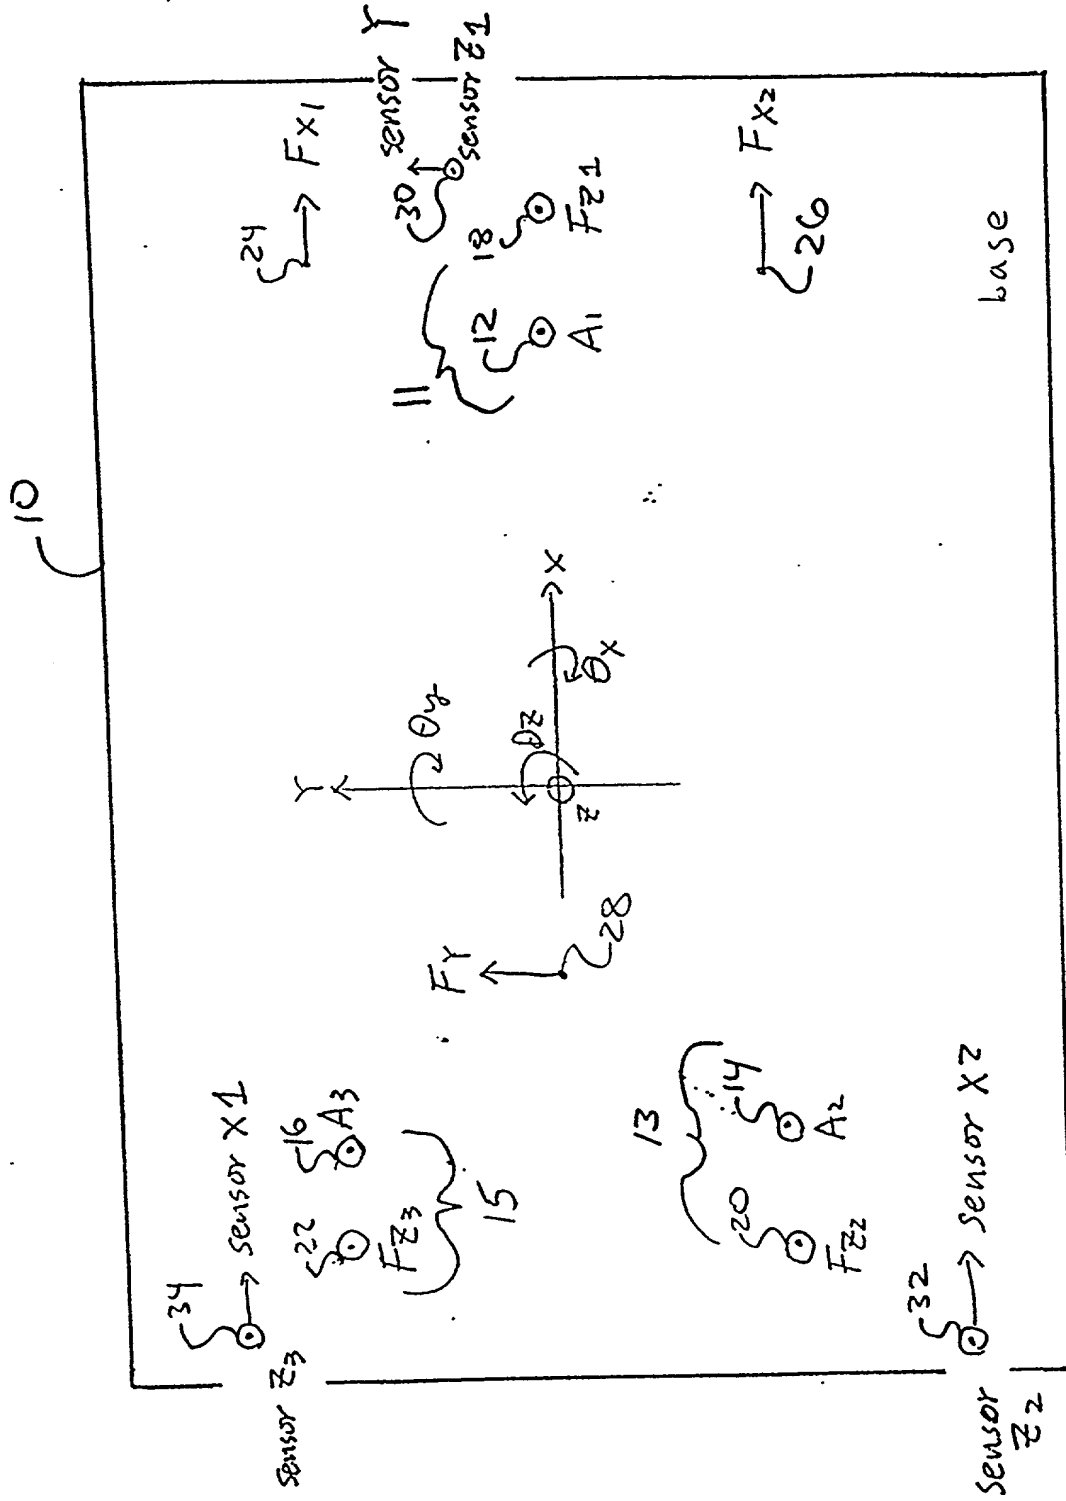 10
24
Fx1
sensor Y
sensor Z1
30
18
Fz1
11
12
A1
Fx2
26
base
Y
θy
θz
X
θx
Z
FY
28
34
sensor X1
sensor Z3
22
16
A3
Fz3
15
13
14
A2
20
Fz2
32
sensor X2
sensor
Z2